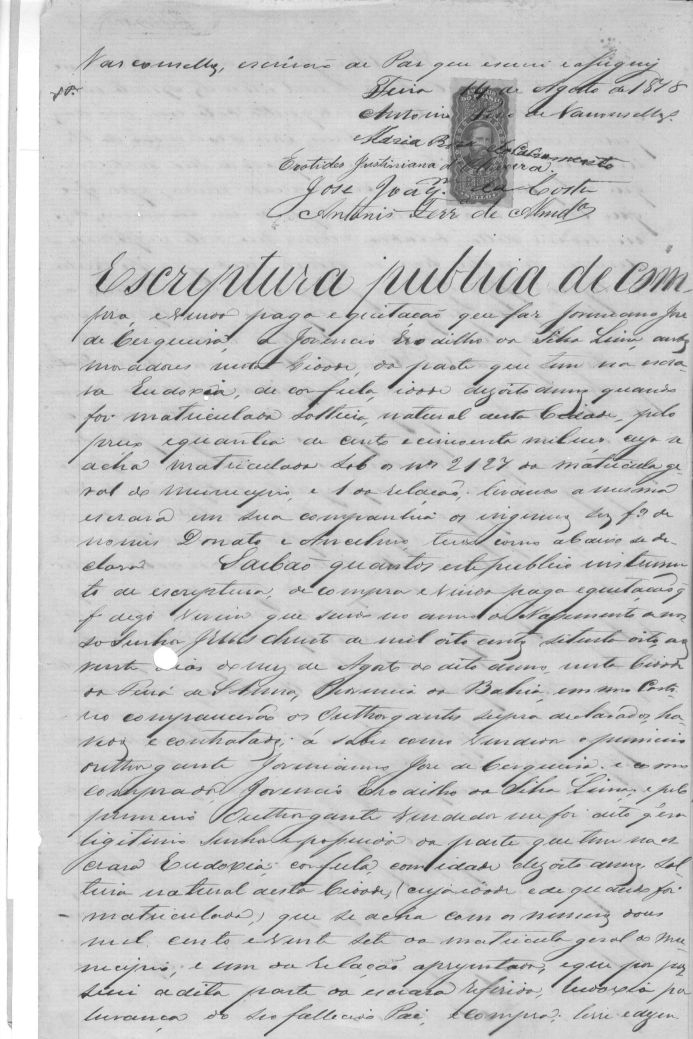 Vasconsellos, escrivão de Paz que escrevi e assignej
Feira 14 de Agosto de 1878
Antonio José de Vasconsellos.
Maria do Nascimento
Justiniana de Oliveira.
José Joaqm. da Costa
Antonio Ferr de Almda
Escriptura publica de com
pra, e venda paga e quitação que faz Joze
de Cerqueira, a Jovencio Erodilho da Silva Lima, ambos
moradores nesta Cidade, da parte que tem na escra
va Eudoxia, de cor fula, idade dezoito annos quando
foi matriculada solteira, natural desta Cidade, pelo
preço e quantia de cento e cincoenta mil reis cuja se
acha matriculada sob os nos 2127 da matricula ge
ral do municipio, e 1 da relação. levando a mesma
escrava em sua companhia os ingenuos seus fos de
nomes Donato e Ancelmo, tudo como abaixo se de
clara Saibão quantos este publico instrumen
to de escriptura, de compra e venda paga e quitação
virem que sendo no anno do Nascimento de nos
so Senhor Jesus Christo de mil oito centos setenta oito, aos
vinte dias do mez de Agosto do dito anno, nesta Cidade
da Feira de S Anna, Provincia da Bahia, em meo Carto
rio comparecerão os Outhorgantes supra declarados, ha
vidos e contratados; á saber como vendedor o primeiro
outhorgante José de Cerqueira e como
comprador Jovencio Erodilho da Silva Lima; e pelo
primeiro Outhorgante vendedor me foi dito q̃ era
ligitimo senhor e possuidor da parte que tem na es
crava Eudoxia; cor fula, com idade dezoito annos, sol
teira natural desta Cidade, (cuja idade e de quando foi
matriculada,) que se acha com os numeros dous
mil cento e vinte sete da matricula geral do mu
nicipio, e um da relação apresentada; e que por pos
suir a dita parte da escrava referida, Eudoxia por
herança do seo fallecido Pai, e compra; livre e dezem